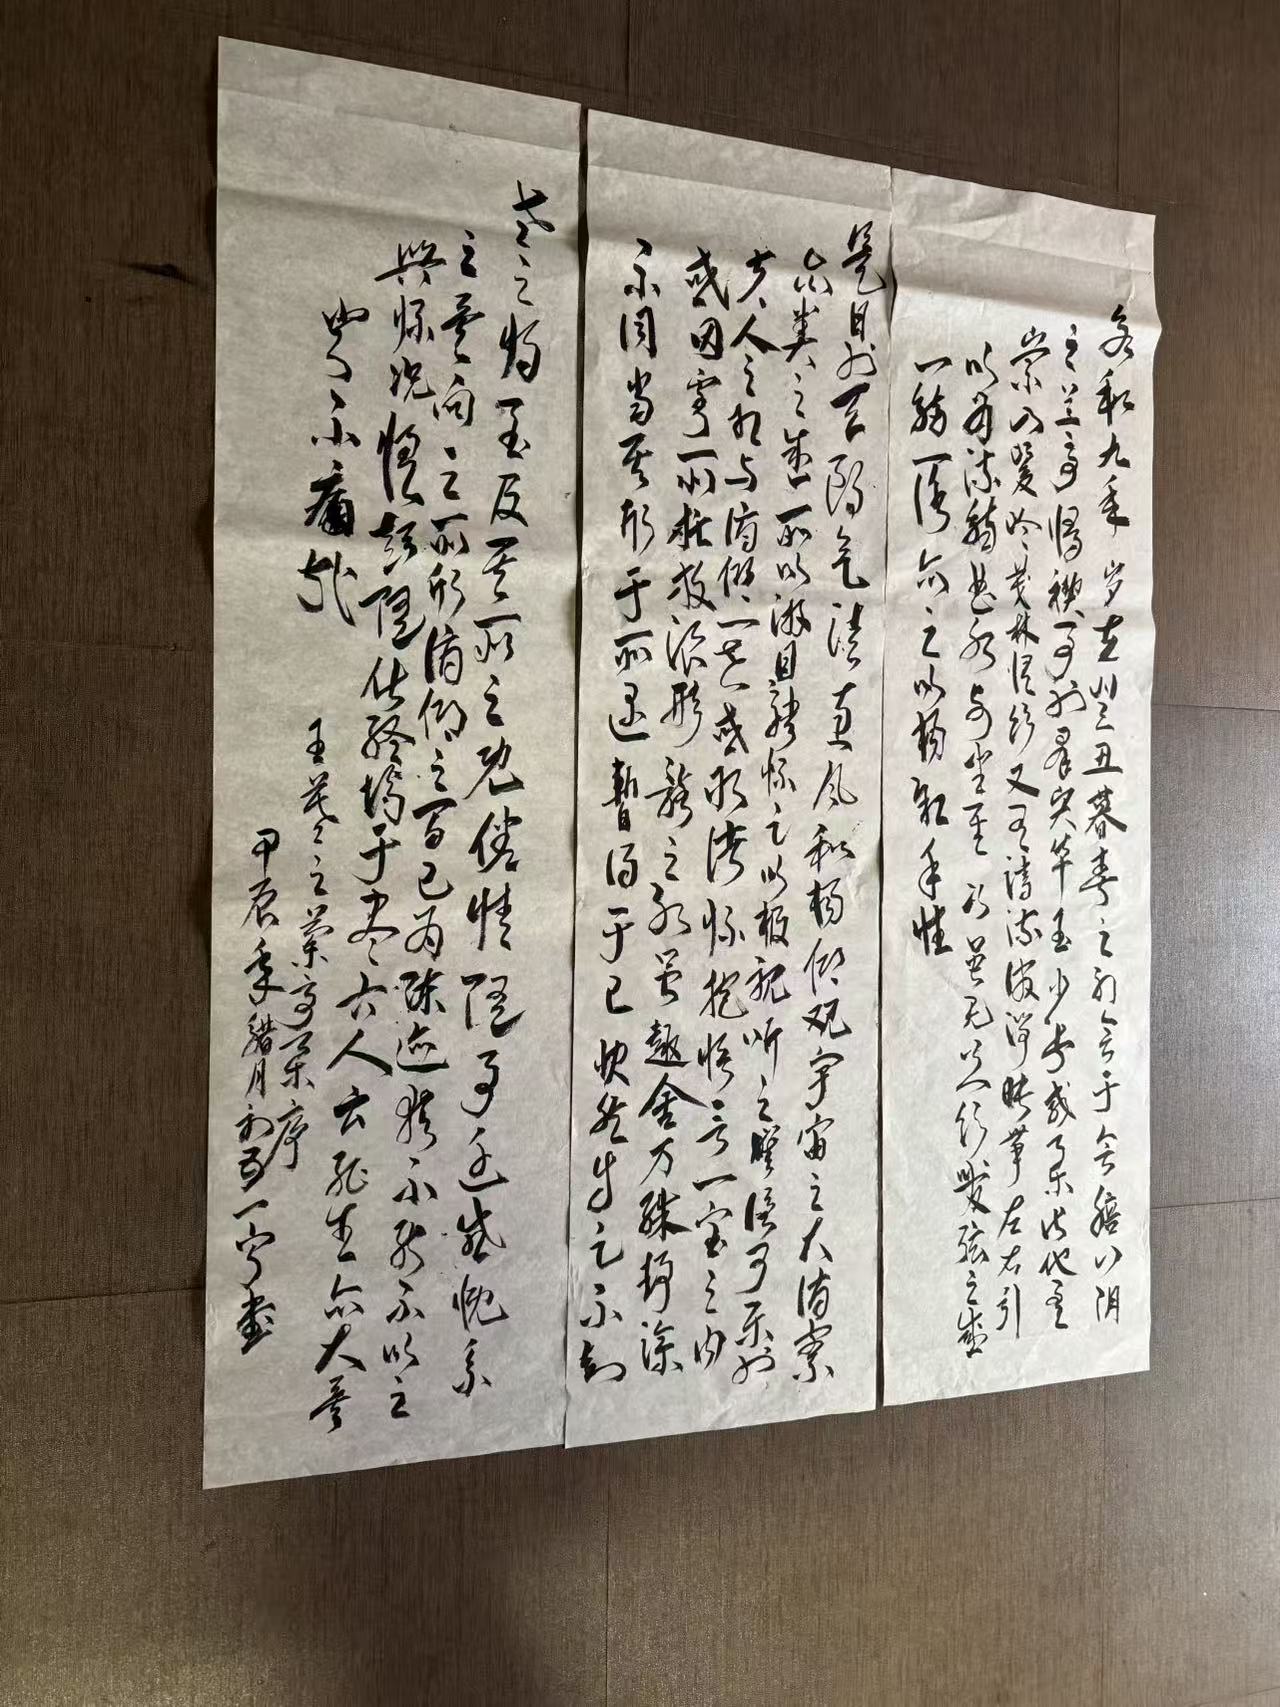 永和九年岁在癸丑暮春之初会于会稽山阴
之兰亭修禊事也群贤毕至少长咸集此地有
崇山峻岭茂林修竹又有清流激湍映带左右引
以为流觞曲水列坐其次虽无丝竹管弦之盛
一觞一咏亦足以畅叙幽情
是日也天朗气清惠风和畅仰观宇宙之大俯察
品类之盛所以游目骋怀足以极视听之娱信可乐也
夫人之相与俯仰一世或取诸怀抱悟言一室之内
或因寄所托放浪形骸之外虽趣舍万殊静躁
不同当其欣于所遇暂得于己快然自足不知
老之将至及其所之既倦情随事迁感慨系
之矣向之所欣俯仰之间已为陈迹犹不能不以之
兴怀况修短随化终期于尽古人云死生亦大矣
岂不痛哉
王羲之兰亭集序
甲辰年腊月 一宁书